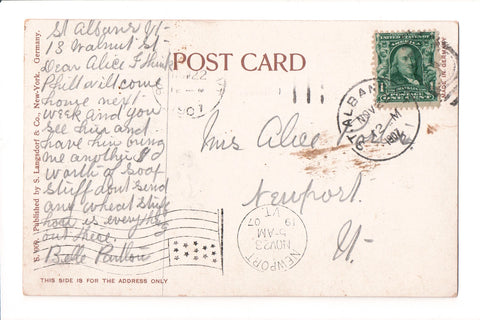 St Albans Vt
13 Walnut St
Dear Alice I think
Phill will come
home next
week and you
see him and
have him bring
me another $
worth of Soap
stuff dont send
any wheat stuff
how is everything
out there
Belle
POST CARD
THIS SIDE IS FOR THE ADDRESS ONLY
Published by S. Langsdorf & Co., New-York. Germany.
MADE IN GERMANY
22
190
UNITED STATES OF AMERICA
1
ST ALBANS
NOV
12-M
1907
Miss Alice
Newport
Vt.
NEWPORT
NOV 23
5-AM
19 07
VT.